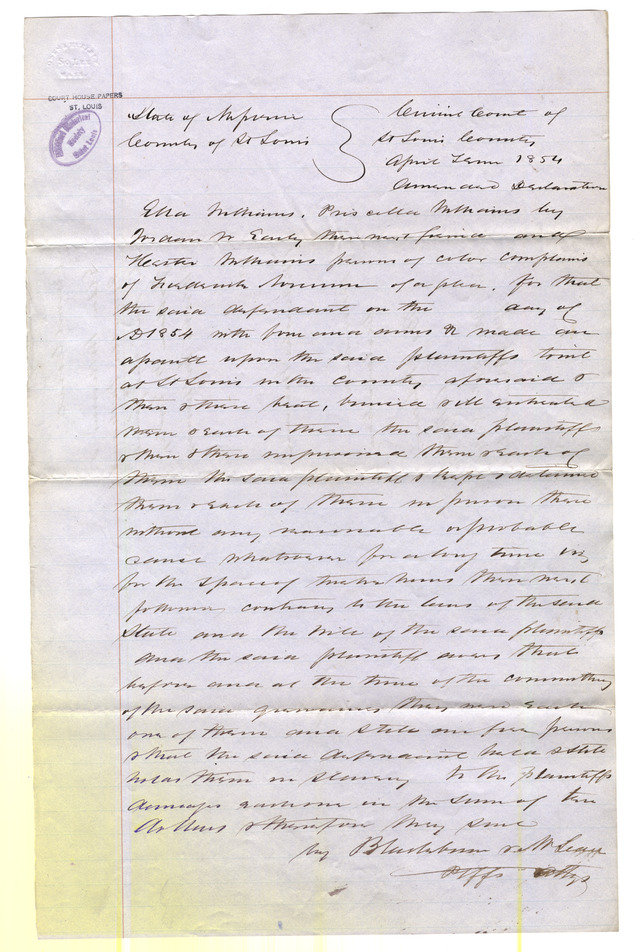 COURT HOUSE PAPERS
ST. LOUIS
Missouri Historical
Society
Saint Louis
State of Missouri
County of St Louis
Circuit Court of
St Louis County
April Term 1854
Amended Declaration
Ella Williams, Priscilla Williams by
W Early their next friend and
Hester Williams persons of color complains
of Frederick of a plea, for that
the said defendant on the day of
AD 1854 with force and arms &c made an
assault upon the said plaintiffs to wit
at St Louis in the County aforesaid &
then & there beat, bruised & ill entreated
them & each of them the said plaintiffs
& then & there imprisoned them & each of
them the said plaintiffs & kept & detained
them & each of them in prison there
without any reasonable or probable
cause whatsoever for a long time viz
for the space of twelve hours then next
following contrary to the laws of the said
State and the will of the said plaintiffs
and the said plaintiff avers that
before and at the time of the committing
of the said grievances they were each
one of them and still are free persons
& that the said defendant held & still
holds them in slavery to the plaintiffs
damages each one in the sum of ten
dollars & therefore they sue
by Blackburn &
Plffs Attys